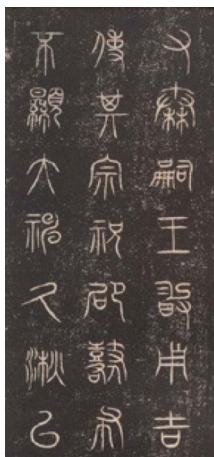 又秦嗣王敢用吉
使其宗祝邵鼛布
不顯大神久湫以